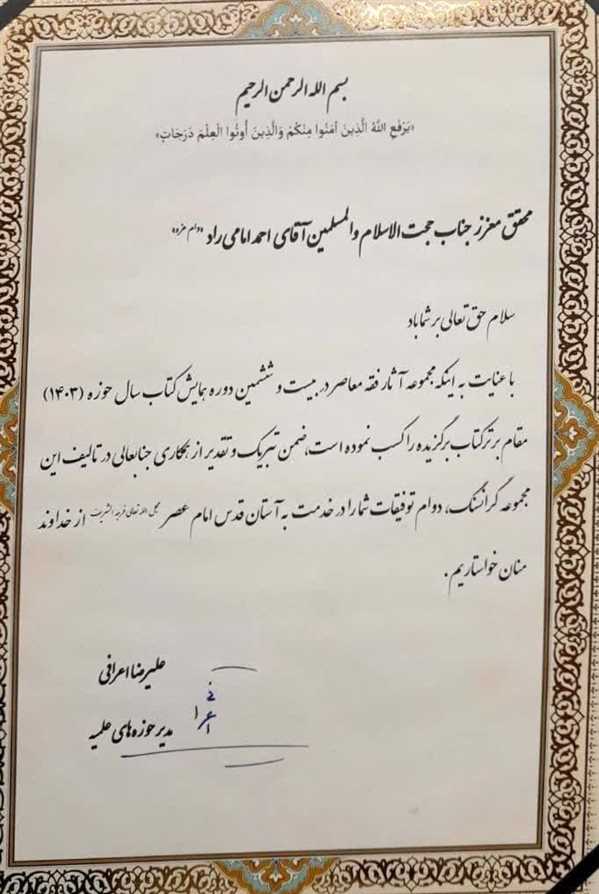 بسم الله الرحمن الرحیم
«یَرْفَعِ اللَّهُ الَّذِینَ آمَنُوا مِنْکُمْ وَالَّذِینَ أُوتُوا الْعِلْمَ دَرَجَاتٍ»
محقق معزز جناب حجت الاسلام والمسلمین آقای احمد امامی راد "دام عزه"
سلام حق تعالی بر شما باد
با عنایت به اینکه مجموعه آثار فقه معاصر در بیست و ششمین دوره همایش کتاب سال حوزه (۱۴۰۳)
مقام برتر کتاب برگزیده را کسب نموده است، ضمن تبریک و تقدیر از همکاری جنابعالی در تالیف این
مجموعه گرانسنگ، دوام توفیقات شما را در خدمت به آستان قدس امام عصر عجل الله تعالی فرجه الشریف از خداوند
منان خواستاریم.
علیرضا اعرافی
مدیر حوزه های علمیه